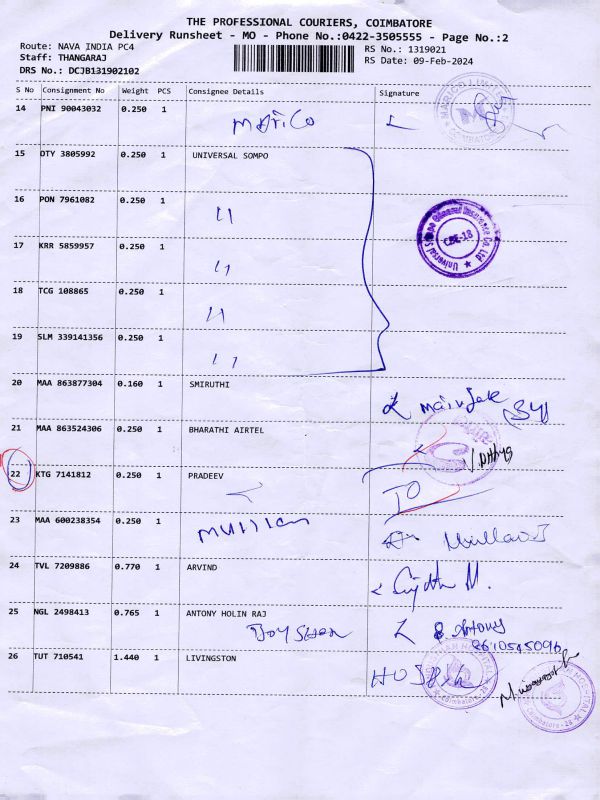 THE PROFESSIONAL COURIERS, COIMBATORE
Delivery Runsheet - MO - Phone No.:0422-3505555 - Page No.:2
Route: NAVA INDIA PC4
RS No.: 1319021
Staff: THANGARAJ
RS Date: 09-Feb-2024
DRS No.: DCJB131902102
S No Consignment No Weight PCS Consignee Details Signature
14 PNI 90043032 0.250 1
MARICO
15 DTY 3805992 0.250 1 UNIVERSAL SOMPO
16 PON 7961082 0.250 1 11
Universal Sompo General Insurance Co. Ltd
CBE-18
17 KRR 5859957 0.250 1 11
18 TCG 108865 0.250 1 11
19 SLM 339141356 0.250 1 11
20 MAA 863877304 0.160 1 SMIRUTHI
21 MAA 863524306 0.250 1 BHARATHI AIRTEL
22 KTG 7141812 0.250 1 PRADEEV
23 MAA 600238354 0.250 1
24 TVL 7209886 0.770 1 ARVIND
25 NGL 2498413 0.765 1 ANTONY HOLIN RAJ
Antony
8610545096
26 TUT 710541 1.440 1 LIVINGSTON
Coimbatore - 28